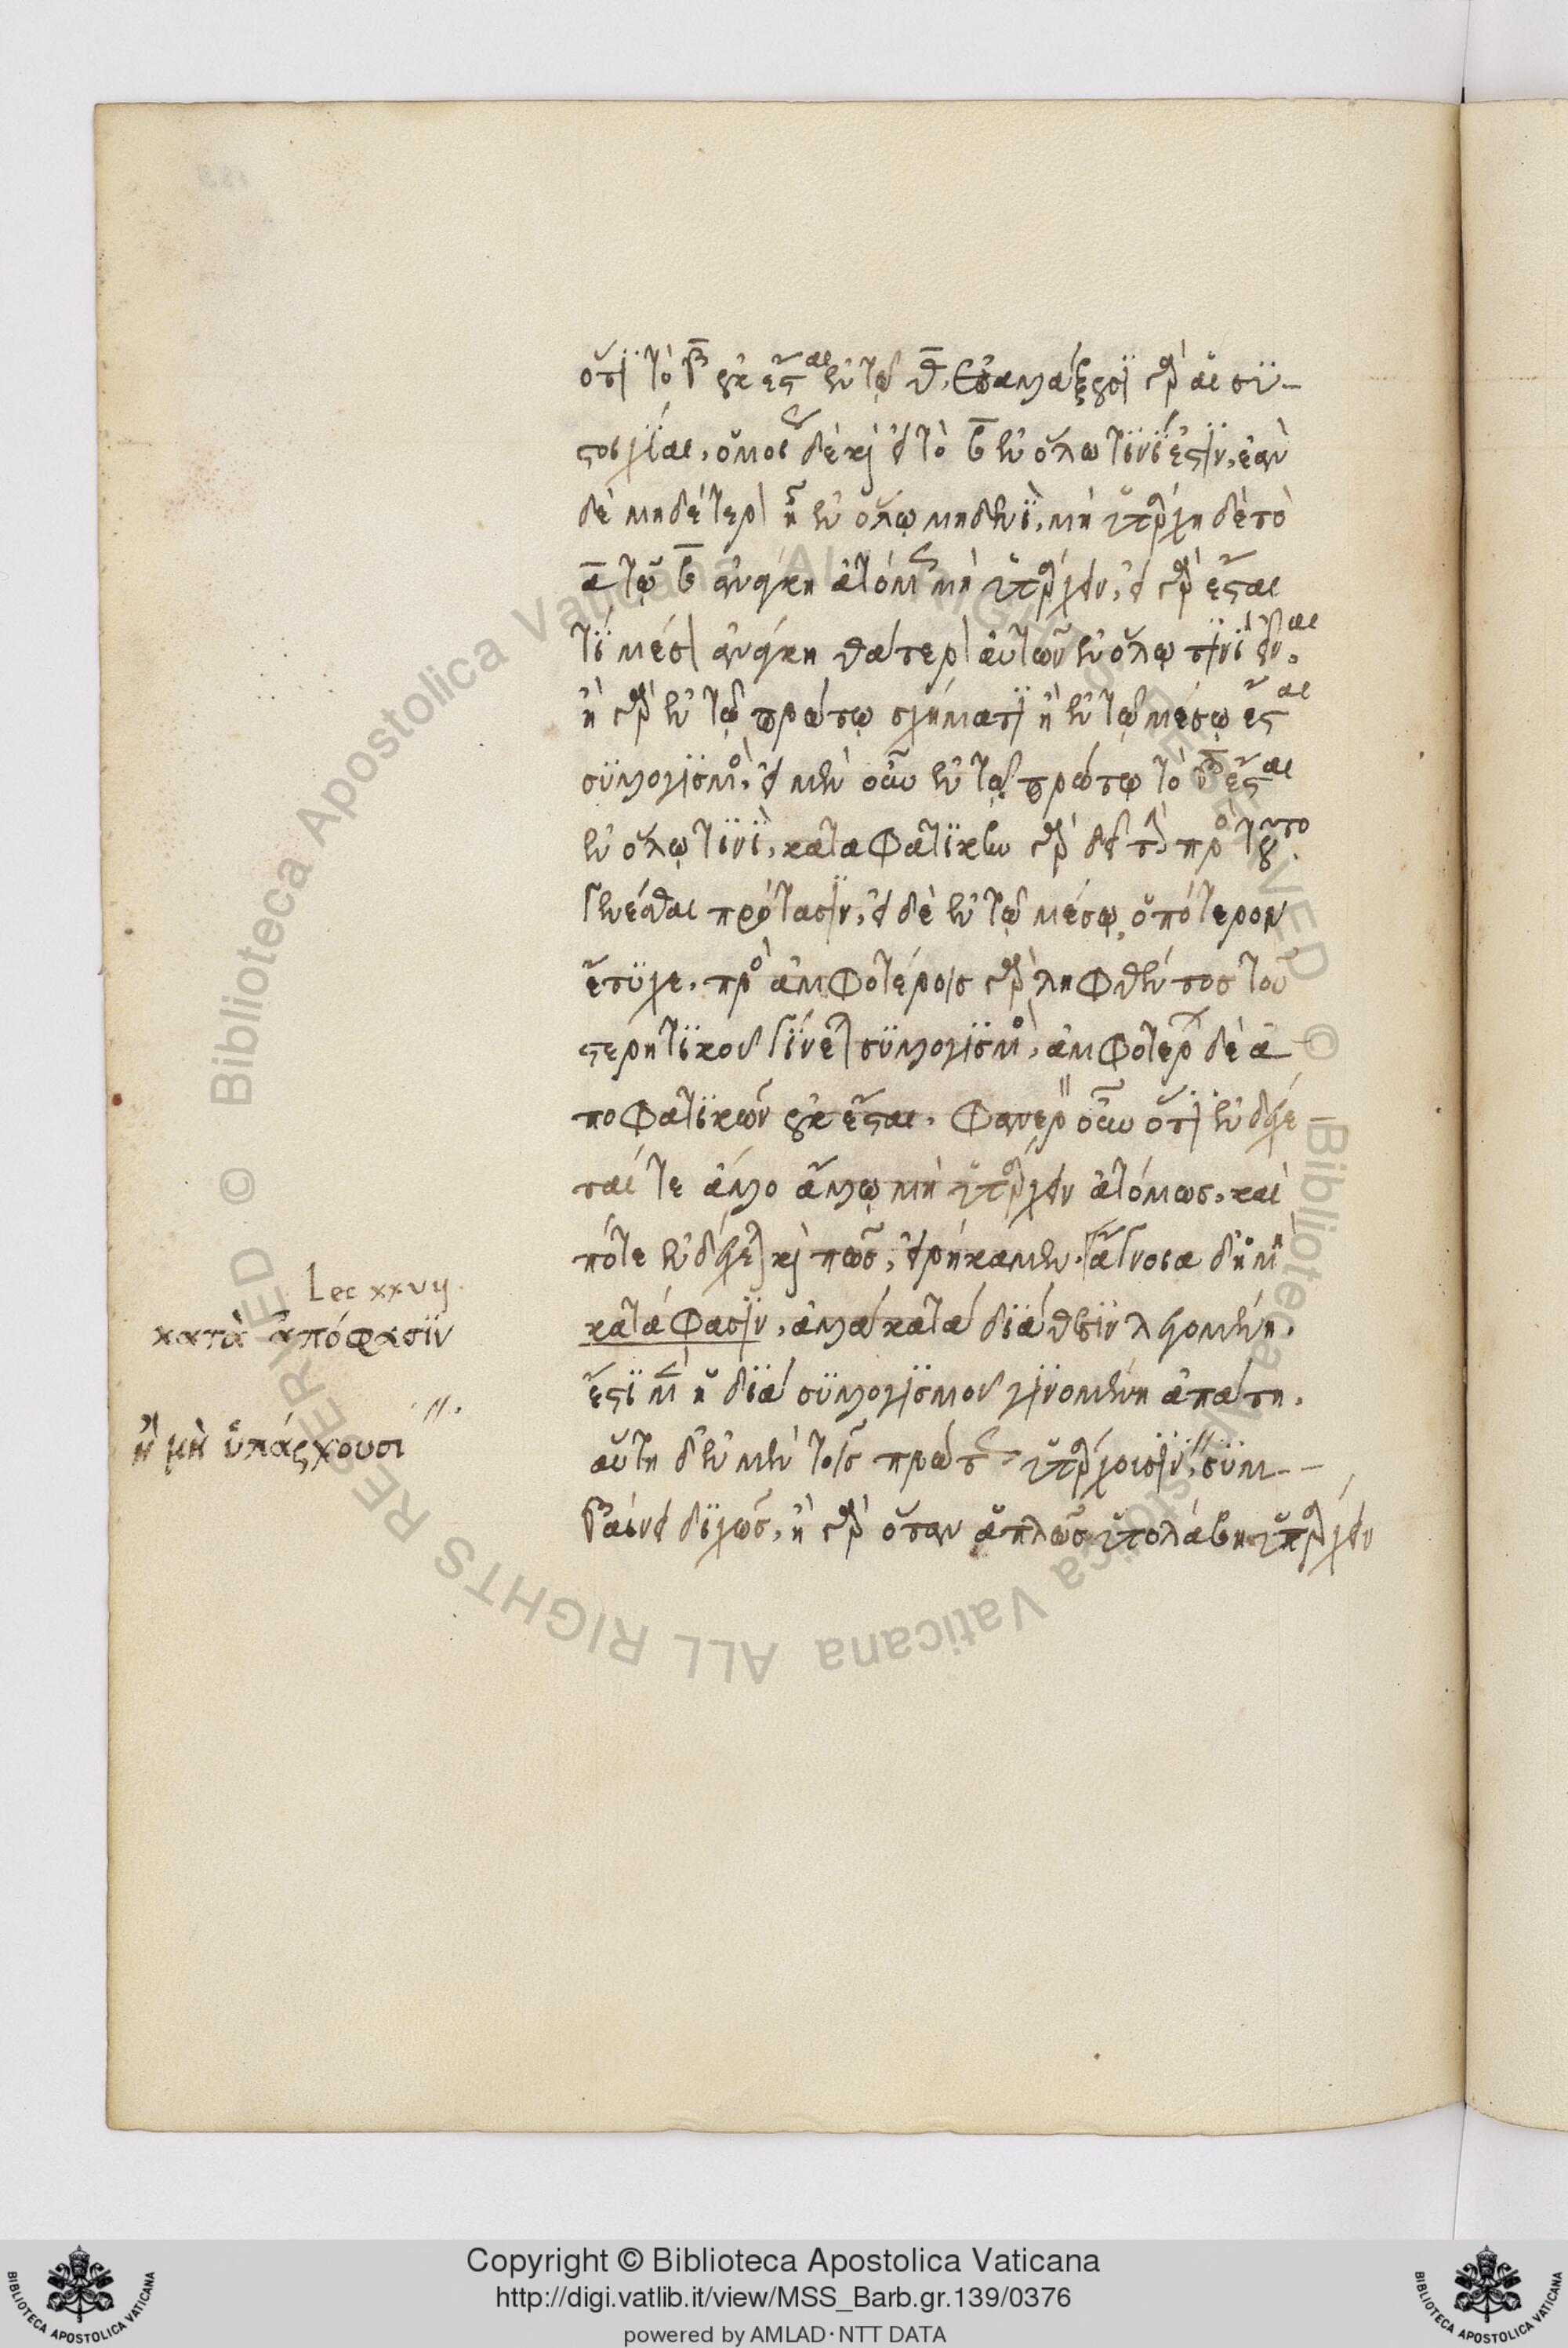 ὅτι τὸ β οὐκ ἔσται ἐν τῷ δ. ἐπαλλάξουσι γὰρ αἱ συ-
στοιχίαι, ὁμοίως δὲ καὶ εἰ τὸ β ἐν ὅλω τινί ἐστιν, ἐὰν
δὲ μηδέτερον ἦ ἐν ὅλῳ μηδενὶ, μὴ ὑπάρχη δὲ τὸ
α τῷ β ἀνάγκη ἀτόμως μὴ ὑπάρχειν, εἰ γὰρ ἔσται
τὶ μέσον ἀνάγκη θάτερον αὐτῶν ἐν ὅλῳ τινὶ εἶναι.
ἢ γὰρ ἐν τῷ πρώτῳ σχήματι ἢ ἐν τῷ μέσῳ ἔσται
συλλογισμὸς, εἰ μὲν οὖν ἐν τῷ πρώτῳ τὸ β ἔσται
ἐν ὅλῳ τινὶ, καταφατικὴν γὰρ δεῖ τὴν πρὸς τοῦτο
γενέσθαι πρότασιν, εἰ δὲ ἐν τῷ μέσῳ, ὁπότερον
ἔτυχε. πρὸς ἀμφοτέροις γὰρ ληφθέντος τοῦ
στερητικοῦ γίνεται συλλογισμὸς, ἀμφοτέρων δὲ ἀ
ποφατικῶν οὐκ ἔσται. Φανερὸν οὖν ὅτι ἐνδέχε
ταί τε ἄλλο ἄλλῳ μὴ ὑπάρχειν ἀτόμως, καὶ
πότε ἐνδέχεται καὶ πῶς, εἰρήκαμεν. ἄγνοια δ' ἡ μὴ
κατάφασιν, ἀλλὰ κατὰ διάθεσιν λεγομένη.
ἔστι μὲν ἡ διὰ συλλογισμοῦ γινομένη ἀπάτη.
αὕτη δ' ἐν μὲν τοῖς πρώτως ὑπάρχουσιν, συμ--
βαίνει διχῶς, ἢ γὰρ ὅταν ἁπλῶς ὑπολάβη ὑπάρχειν
Lec xxvij.
κατὰ ἀπόφασιν
ἢ μὴ ὑπάρχουσι
Copyright © Biblioteca Apostolica Vaticana
http://digi.vatlib.it/view/MSS_Barb.gr.139/0376
powered by AMLAD·NTT DATA